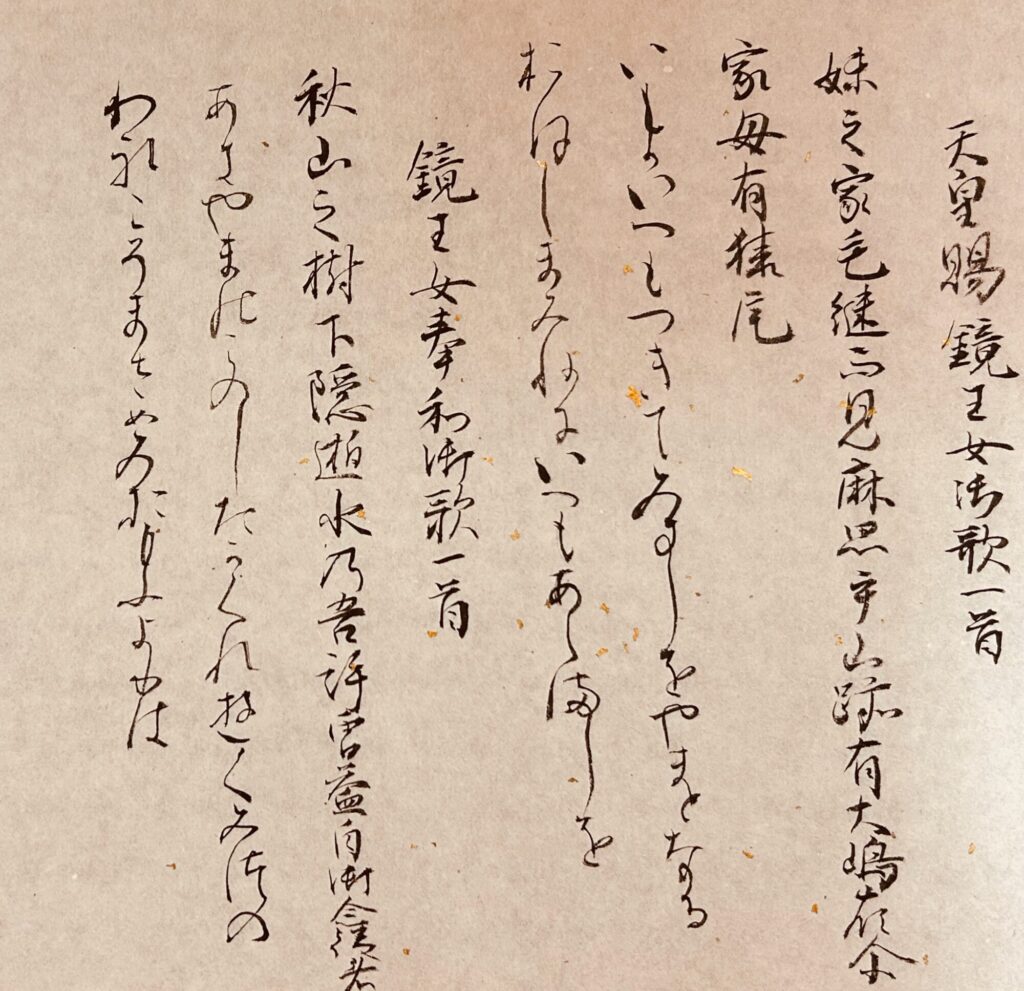 天皇賜鏡王女御歌一首
妹之家毛継而見麻思乎山跡有大嶋嶺尓
家母有猿尾
いもかいへもつきてみましをやまとなる
おほしまみねにいへもあらましを
鏡王女奉和御歌一首
秋山之樹下隠逝水乃吾許曽益目御念者
あきやまのこのしたかくれゆくみつの
われこそまさめみおもひよりは